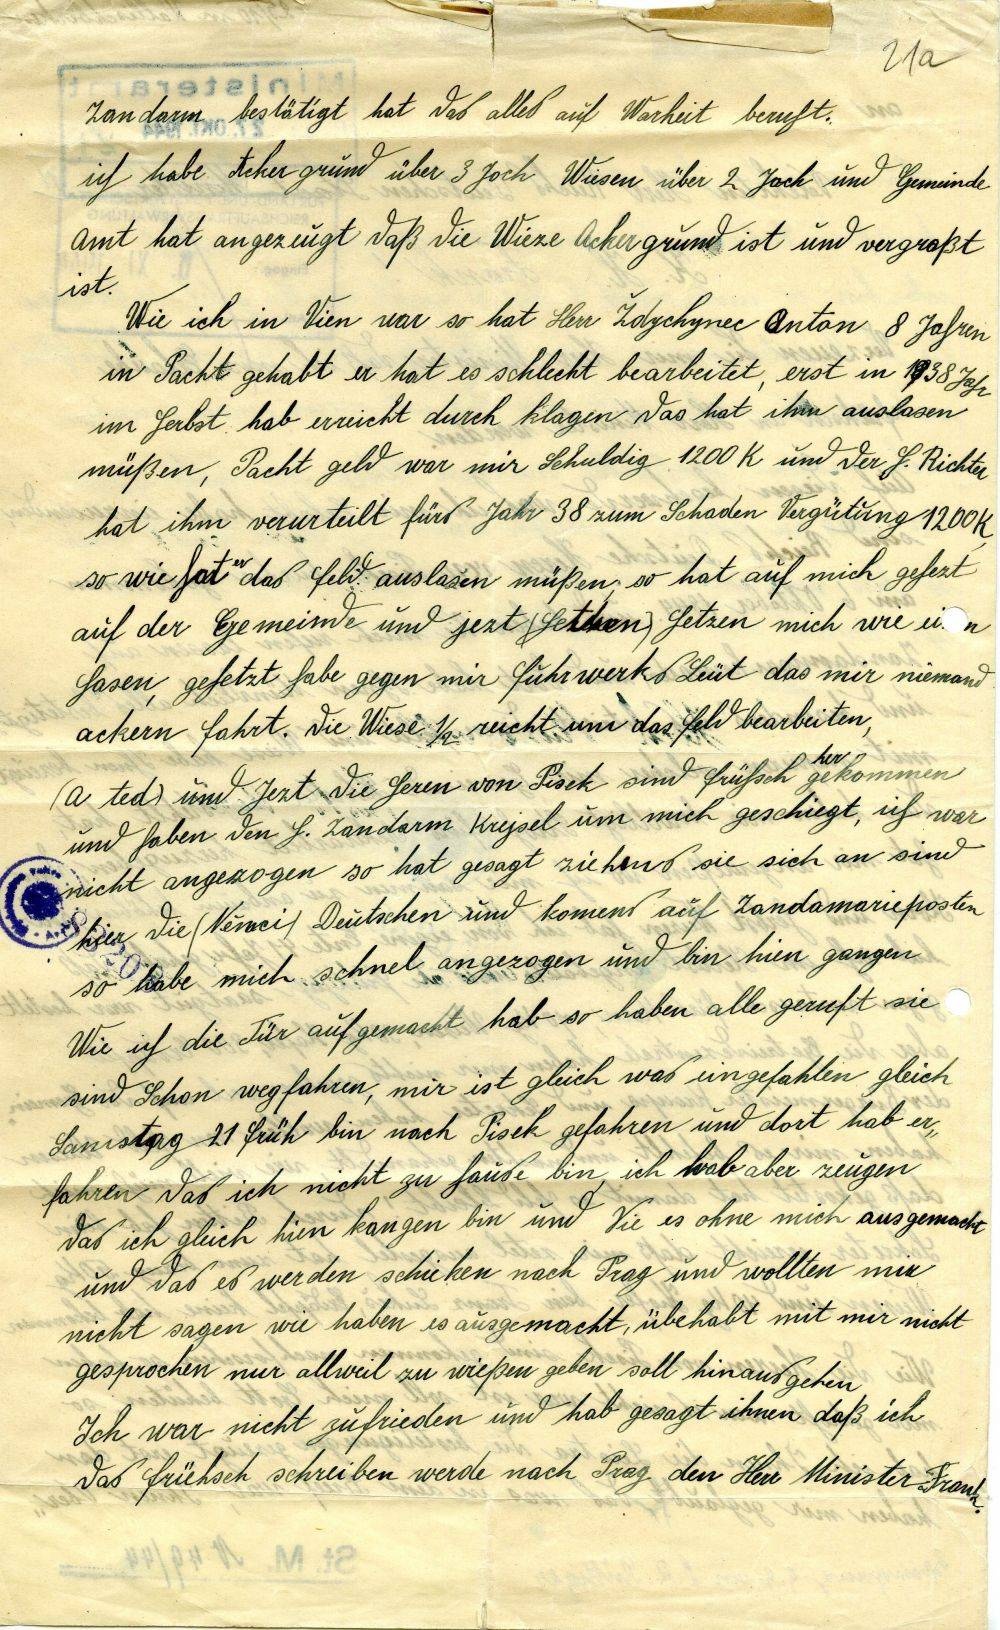 21a
Zandarm bestätigt hat das alles auf Warheit beruft.
ich habe Ackergrund über 3 Joch Wiesen über 2 Joch und Gemeinde
Amt hat angezeugt daß die Wieze Ackergrund ist und vergraßt
ist.
Wie ich in Vien war so hat Herr Ždychynec Anton 8 Jahren
in Pacht gehabt er hat es schlecht bearbeitet, erst in 1938 Jahr
im Herbst hab erreicht durch klagen das hat ihm auslasen
müßen, Pacht geld war mir Schuldig 1200 K und der H. Richter
hat ihm verurteilt fürs Jahr 38 zum Schaden Vergütung 1200 K,
so wie hat er das feld auslasen müßen, so hat auf mich gehezt
auf der Gemeinde und jezt (hethen) hetzen mich wie ein
hasen, gehetzt habe gegen mir fuhrwerks Leüt das mir niemand
ackern fahrt. die Wiese 1/2 reicht um das feld bearbeiten,
(A ted) und Jezt die Heren von Pisek sind frühsch her gekommen
und haben den H. Zandarm Krejsel um mich geschiegt, ich war
nicht angezogen so hat gesagt ziehens sie sich an sind
hier die (Němci) Deutschen und komens auf Zandamarieposten
so habe mich schnel angezogen und bin hien gangen
Wie ich die Tür aufgemacht hab so haben alle geruft sie
sind Schon wegfahren, mir ist gleich was eingefahlen gleich
Samstag 21 früh bin nach Pisek gefahren und dort hab er„
fahren das ich nicht zu hause bin, ich hab aber zeugen
das ich gleich hien kangen bin und Vie es ohne mich ausgemacht
und das es werden schicken nach Prag und wollten mir
nicht sagen wie haben es ausgemacht, übehabt mit mir nicht
gesprochen nur allweil zu wießen geben soll hinausgehen
Ich war nicht zufrieden und hab gesagt ihnen daß ich
das frühsch schreiben werde nach Prag den Herr Minister Frank.